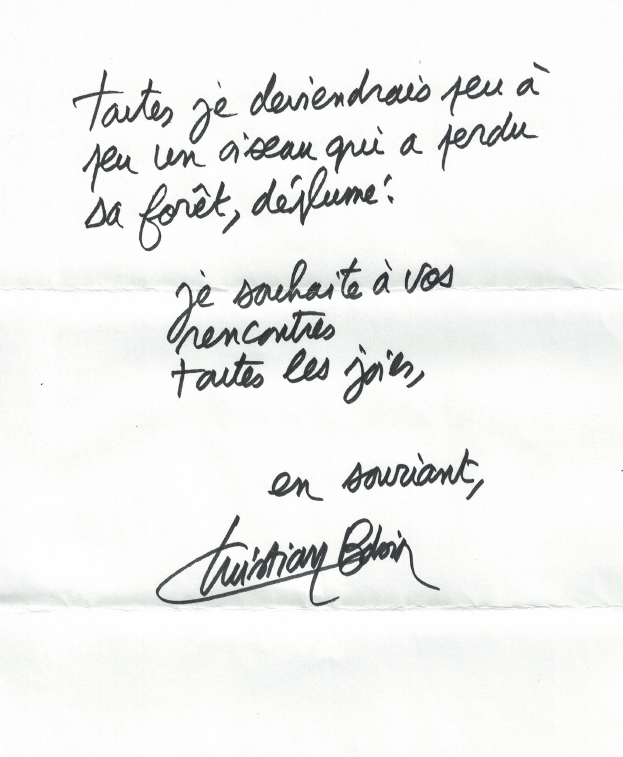 toutes, je deviendrais peu à
peu un oiseau qui a perdu
sa forêt, déplumé.
je souhaite à vos
rencontres
toutes les joies,
en souriant,
Christian Bobin